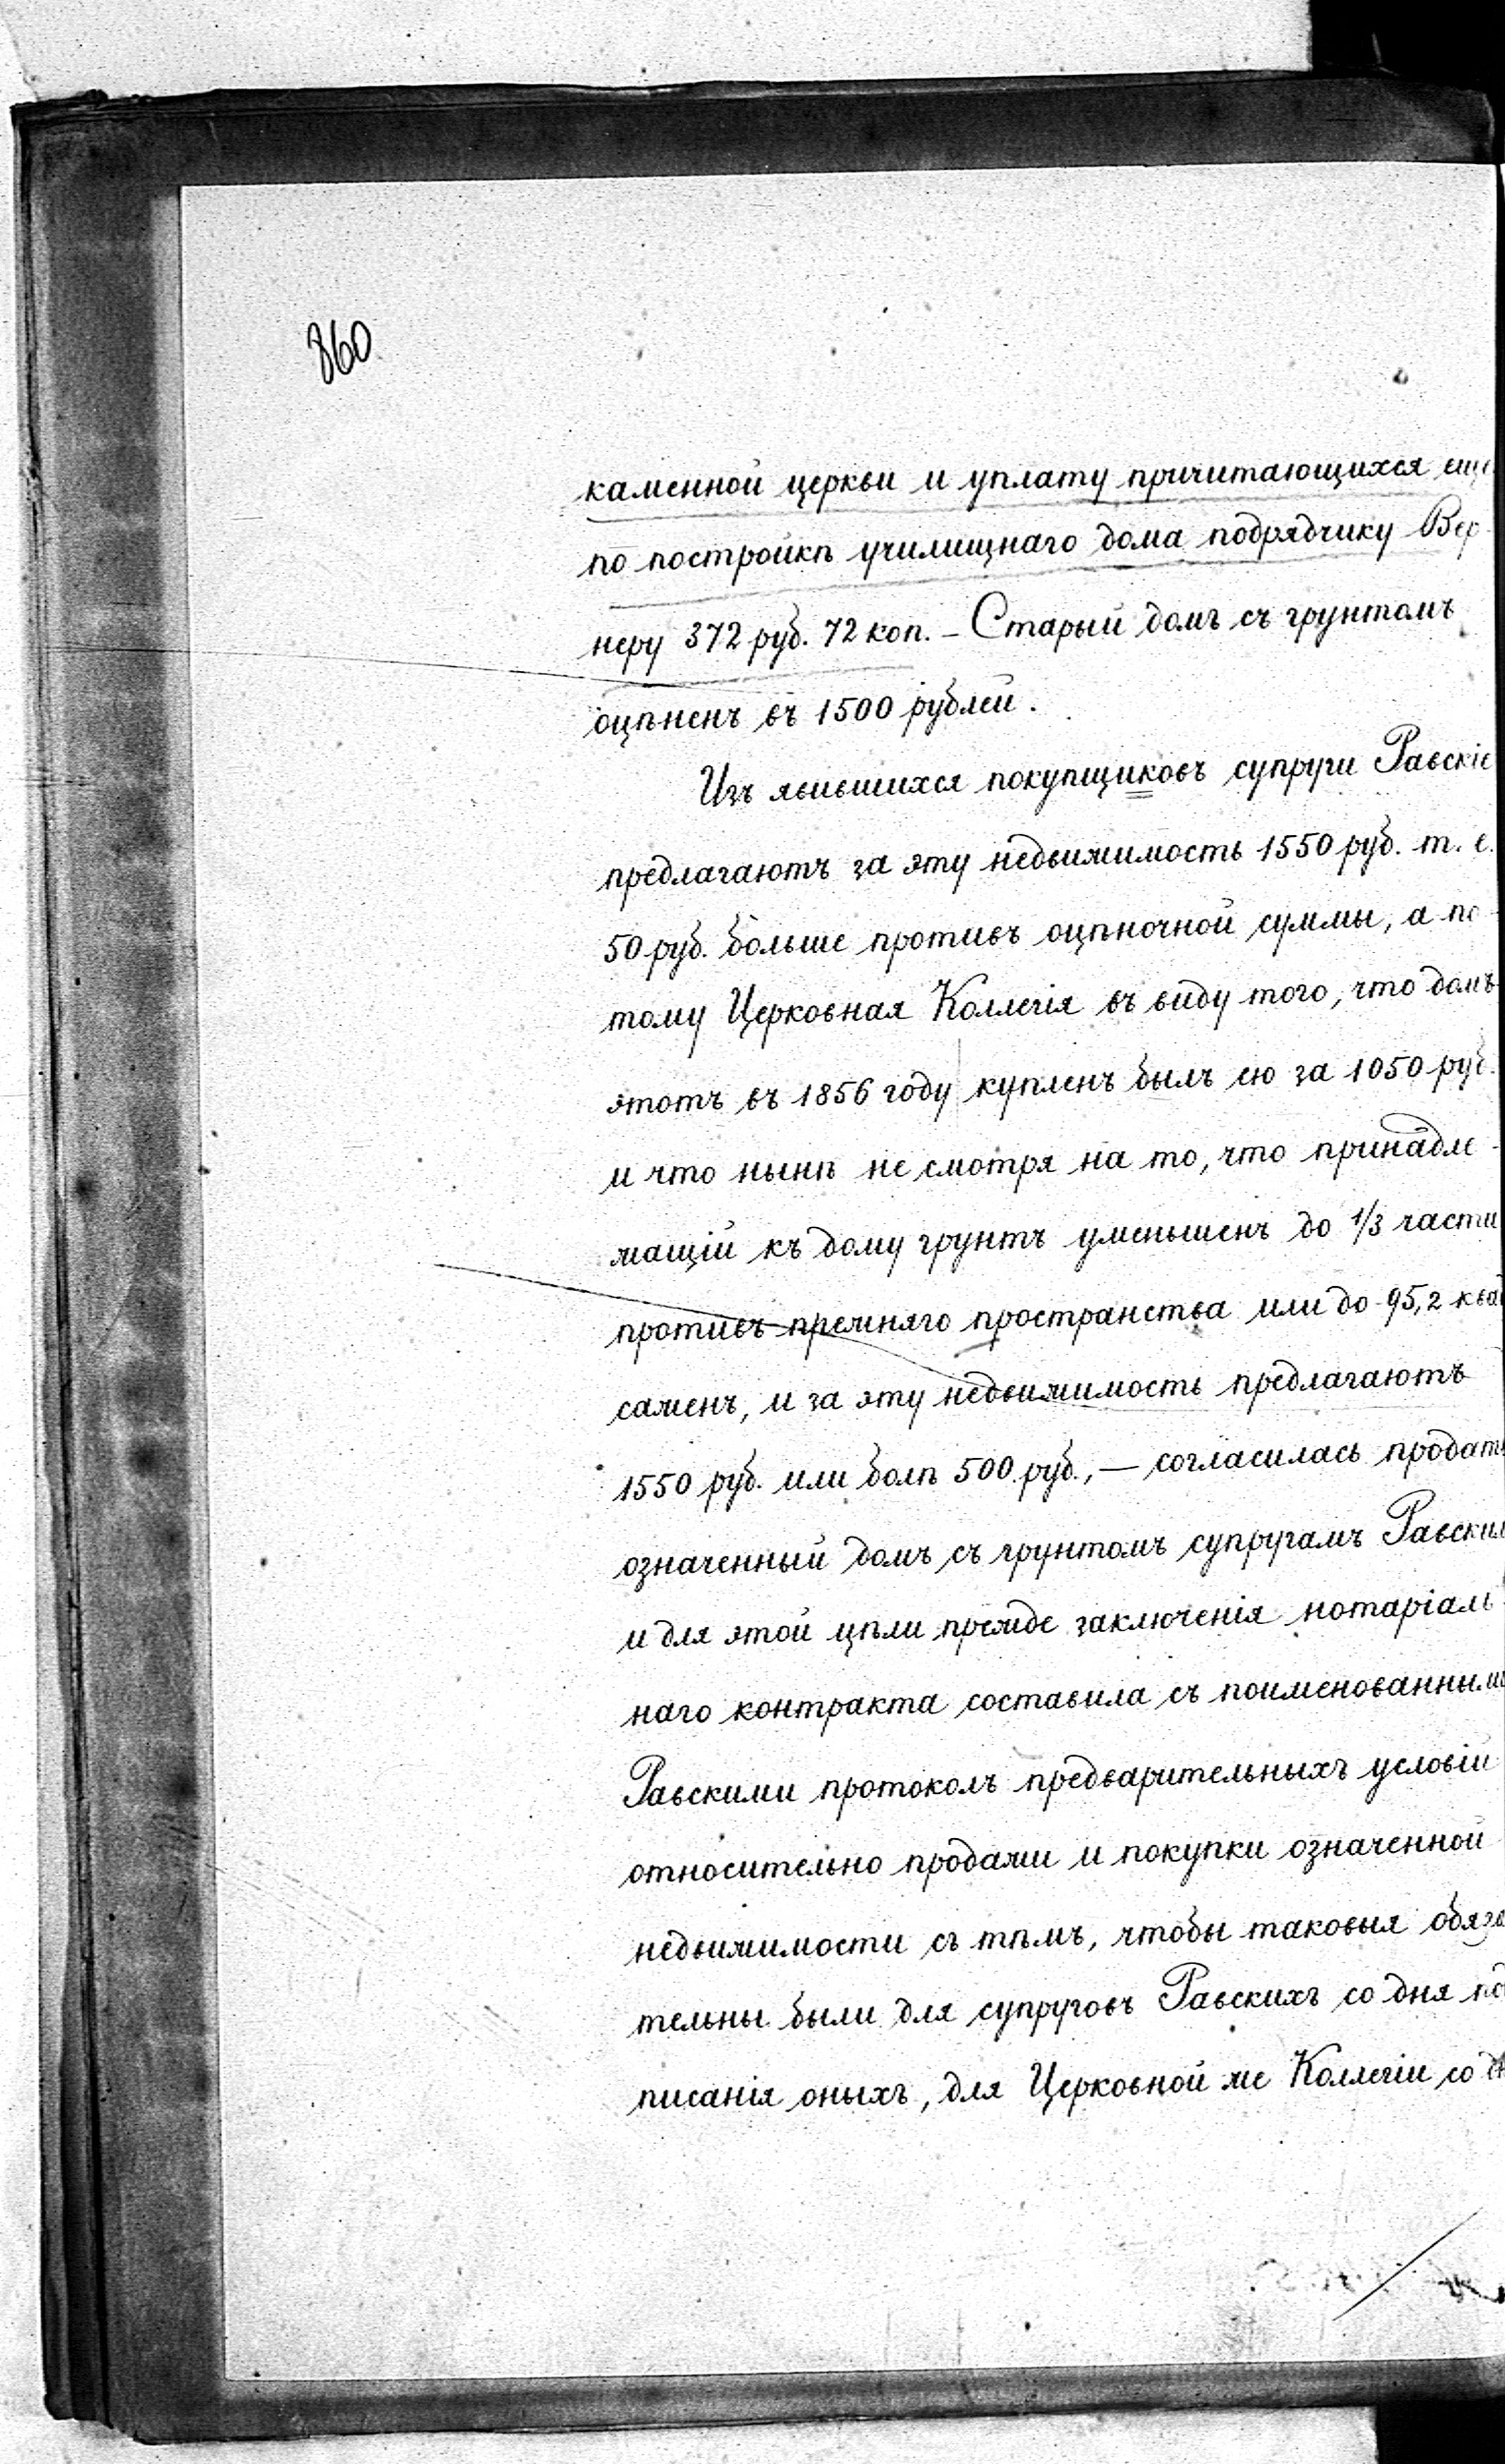 860
каменной церкви и уплату причитающихся еще
по постройкѣ училищнаго дома подрядчику Вер-
неру 372 руб. 72 коп. – Старый домъ съ грунтомъ
оцѣненъ въ 1500 рублей.
Изъ явившихся покупщиковъ супруги Равскіе
предлагаютъ за эту недвижимость 1550 руб. т. е.
50 руб. больше противъ оцѣночной суммы, а по-
тому Церковная Коллегія въ виду того, что домъ
этотъ въ 1856 году купленъ былъ ею за 1050 руб.
и что нынѣ не смотря на то, что принадле-
жащій къ дому грунтъ уменьшенъ до 1/3 части
противъ прежняго пространства или до 95,2 квад
саженъ, и за эту недвижимость предлагаютъ
1550 руб. или болѣ 500 руб., — согласилась продать
означенный домъ съ грунтомъ супругамъ Равским
и для этой цѣли прежде заключенія нотаріаль-
наго контракта составила съ поименованными
Равскими протоколъ предварительныхъ условій
относительно продажи и покупки означенной
недвижимости съ тѣмъ, чтобы таковыя обяза
тельны были для супруговъ Равскихъ со дня под
писанія оныхъ, для Церковной же Коллегіи со дн